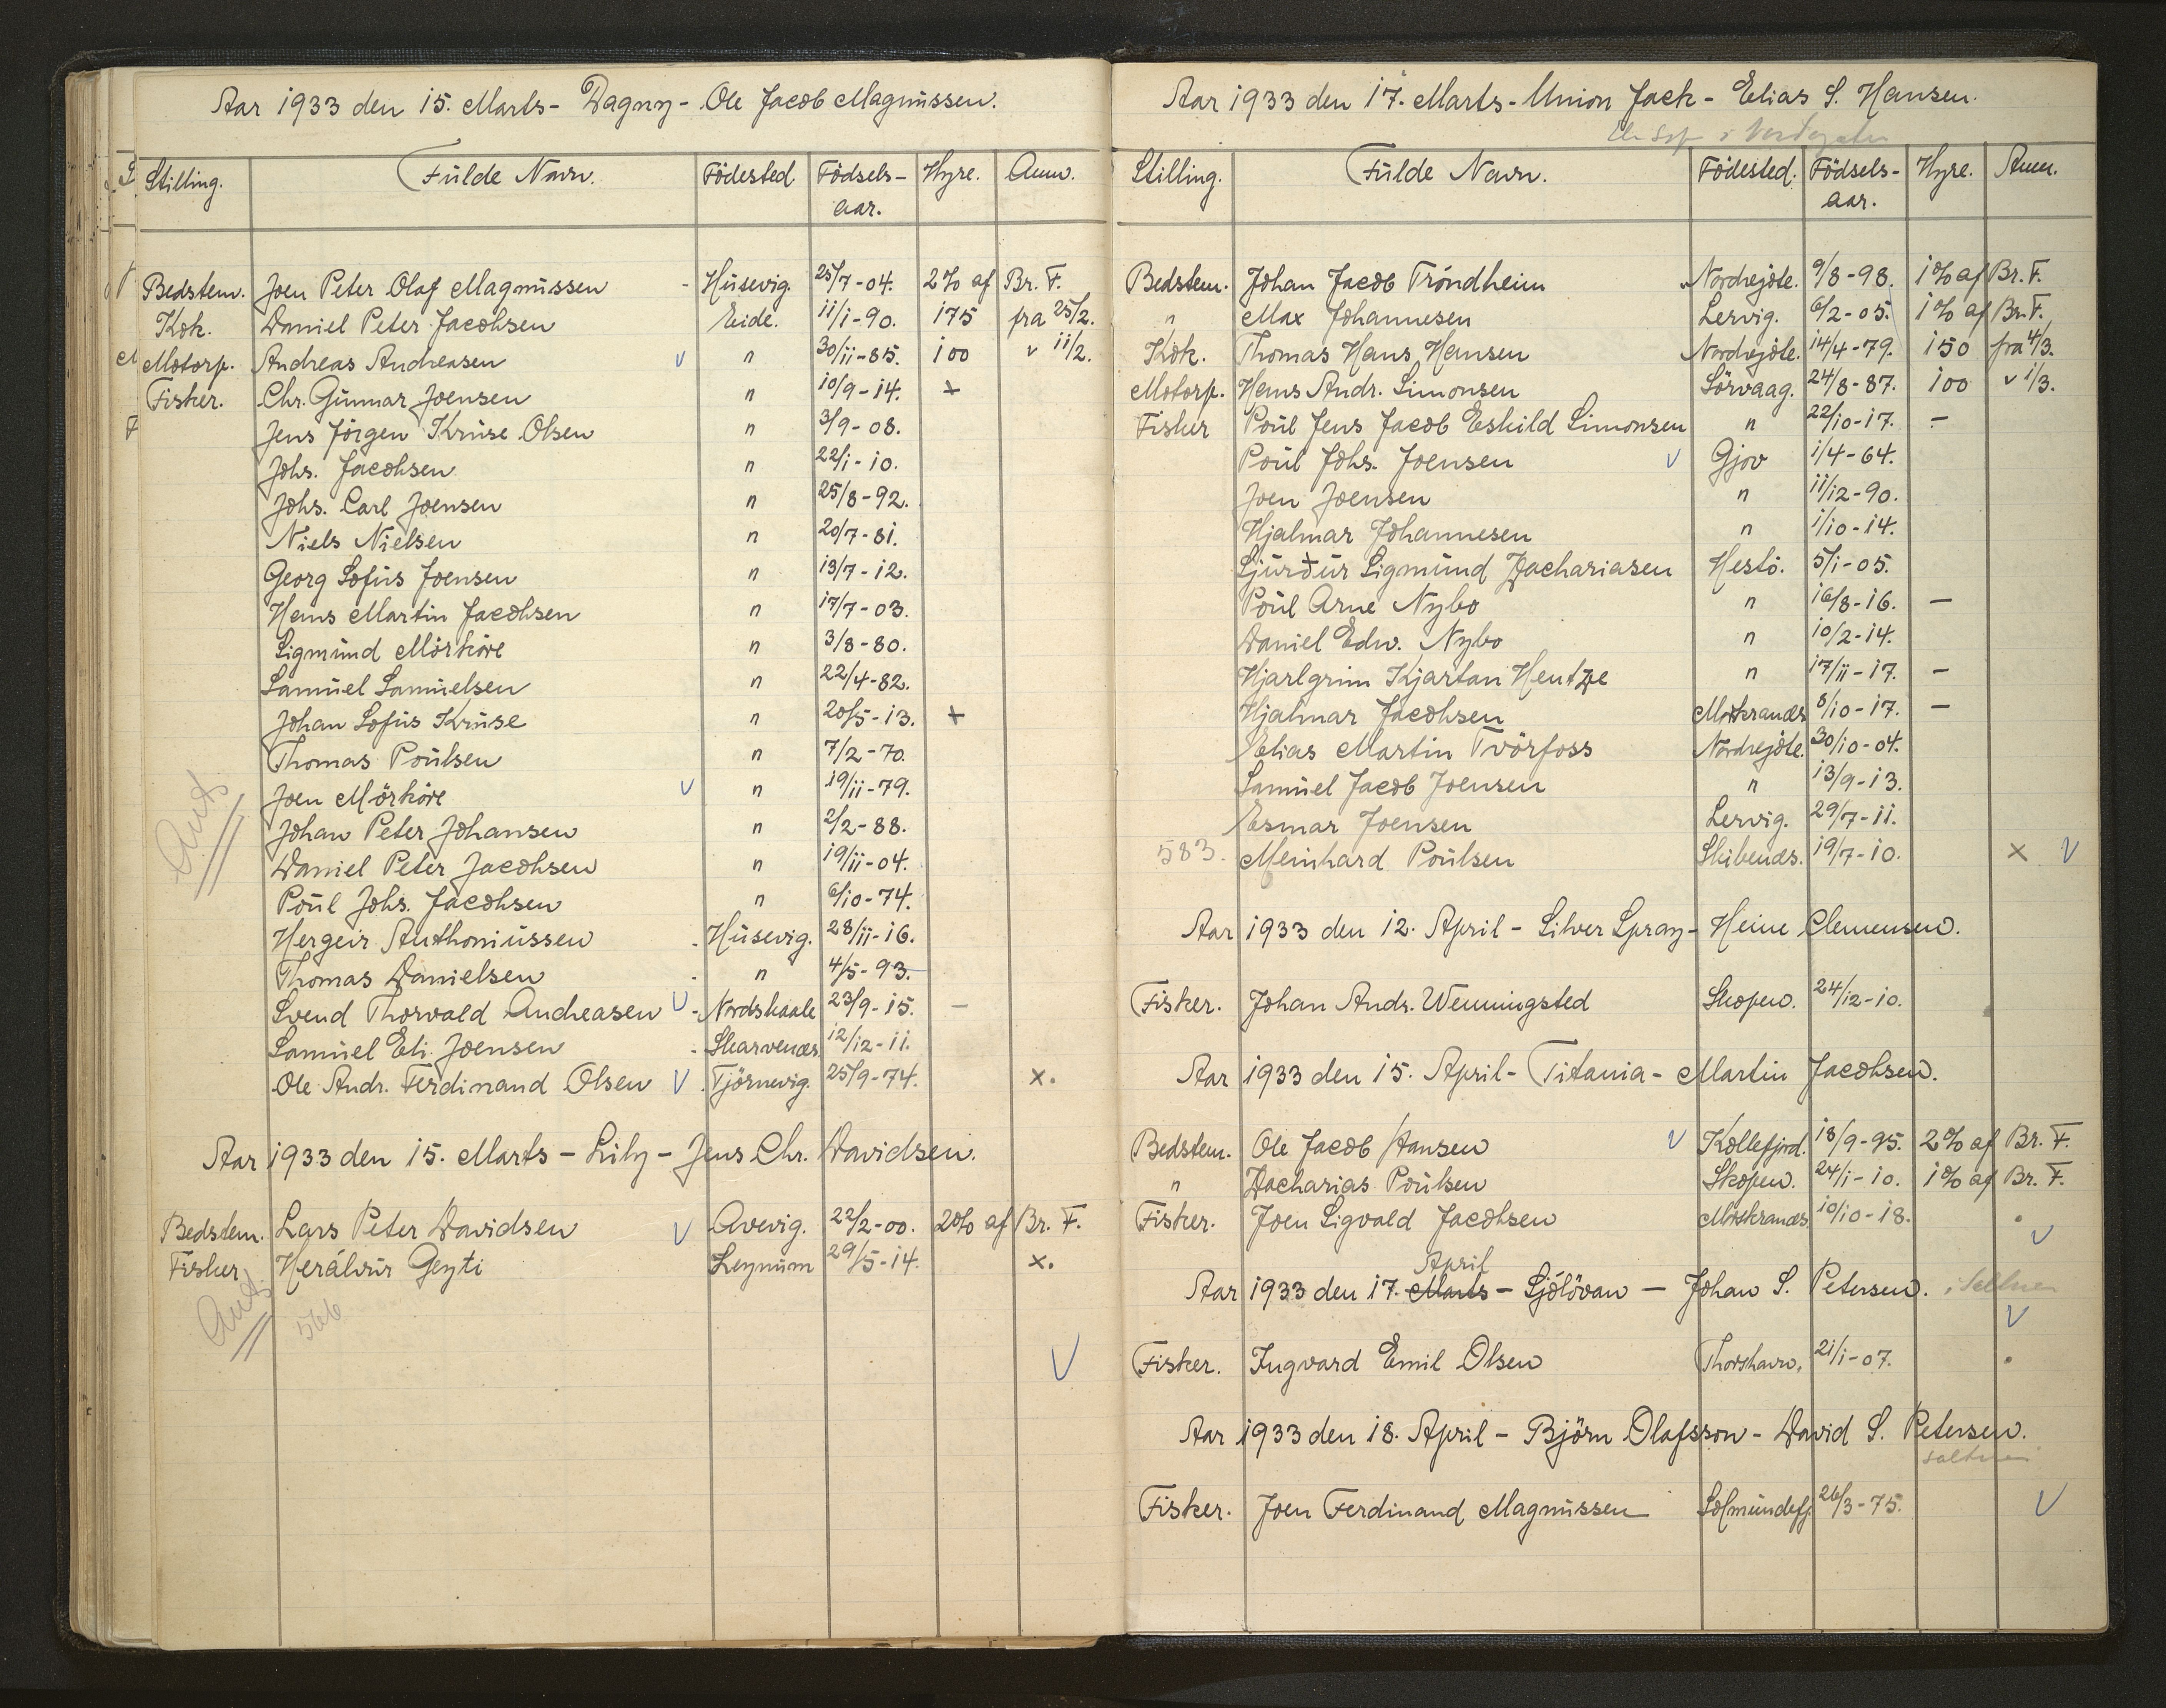 Aar 1933 den 15. Marts - Dagny - Ole Jacob Magnussen.
Stilling. Fulde Navn. Födested Födsels- Hyre. Anm.
aar.
Bedstem. Joen Peter Olaf Magnussen - Husevig. 25/7-04. 2% af Br. F.
Kok. Daniel Peter Jacobsen Eide. 11/1-90. 175 fra 25/2.
Motorp. Andreas Andreasen v " 30/11-85. 100 " 11/2.
Fisker. Chr. Gunnar Joensen " 10/9-14. +
Jens Jörgen Kruse Olsen " 3/9-08.
Johs. Jacobsen " 22/1-10.
Johs. Carl Joensen " 25/8-92.
Niels Nielsen " 20/7-81.
Georg Sofus Joensen " 13/7-12.
Hans Martin Jacobsen " 17/7-03.
Sigmund Mörköre " 3/8-80.
Samuel Samuelsen " 22/4-82.
Johan Sofus Kruse " 20/5-13. +
Thomas Poulsen " 7/2-70.
Joen Mörköre v " 19/11-79.
Johan Peter Johansen " 2/2-88.
Daniel Peter Jacobsen " 19/11-04.
Poul Johs. Jacobsen " 6/10-74.
Hergeir Anthoniussen - Husevig. 28/11-16.
Thomas Danielsen - " 4/5-93.
Svend Thorvald Andreasen v - Nordskaale 23/9-15. -
Samuel Eli Joensen - Skarvenæs. 12/12-11.
Ole Andr. Ferdinand Olsen v . Tjörnevig. 25/9-74. x.
Aar 1933 den 15. Marts - Lily - Jens Chr. Davidsen.
Bedstem. Lars Peter Davidsen v Qvevig. 22/2-00. 2% af Br. F.
Fisker Herálvur Geyti Leynum 29/5-14. x.
566
v
Aar 1933 den 17. Marts - Union Jack - Elias S. Hansen.
Stilling. Fulde Navn. Födested. Födsels- Hyre. Anm.
aar.
Bedstem. Johan Jacob Tróndheim Nordrejöte. 9/8-98. 1% af Br. F.
" Max Johannesen Lervig. 6/2-05. 1% af Br. F.
Kok. Thomas Hans Hansen Nordrejöte. 14/4-79. 150 fra 4/3.
Motorp. Hans Andr. Simonsen Sörvaag. 24/8-87. 100 " 1/3.
Fisker Poul Jens Jacob Eskild Simonsen " 22/10-17. -
Poul Johs. Joensen v Gjov 1/4-64.
Joen Joensen " 11/12-90.
Hjalmar Johannesen " 1/10-14.
Sjurður Sigmund Zachariasen Hestö. 5/1-05.
Poul Arne Nybo " 16/8-16. -
Daniel Edw. Nybo " 10/2-14.
Hjarlgrim Kjartan Hentze " 17/11-17. -
Hjalmar Jacobsen Morkranæs 8/10-17. -
Elias Martin Tvörfoss Nordrejöte. 30/10-04.
Samuel Jacob Joensen " 13/9-13.
Esmar Joensen Lervig. 29/7-11.
583. Meinhard Poulsen Skibenæs. 19/7-10. x v
Aar 1933 den 12. April - Silver Spray - Heine Clemensen.
Fisker. Johan Andr. Wenningsted Skopen. 24/12-10.
Aar 1933 den 15. April - Titania - Martin Jacobsen.
Bedstem. Ole Jacob Hansen v Kollefjord. 18/9-95. 2% af Br. F.
" Zacharias Poulsen Skopen. 24/1-10. 1% af Br. F.
Fisker. Joen Sigvald Jacobsen Morkranæs 10/10-18. .
v
April
Aar 1933 den 17. Marts - Sjólövan - Johan S. Petersen.
v
Fisker. Ingvard Emil Olsen Thorshavn. 21/1-07. .
Aar 1933 den 18. April - Björn Olafsson - David S. Petersen.
Fisker. Joen Ferdinand Magnussen Solmundefj. 26/3-75. v